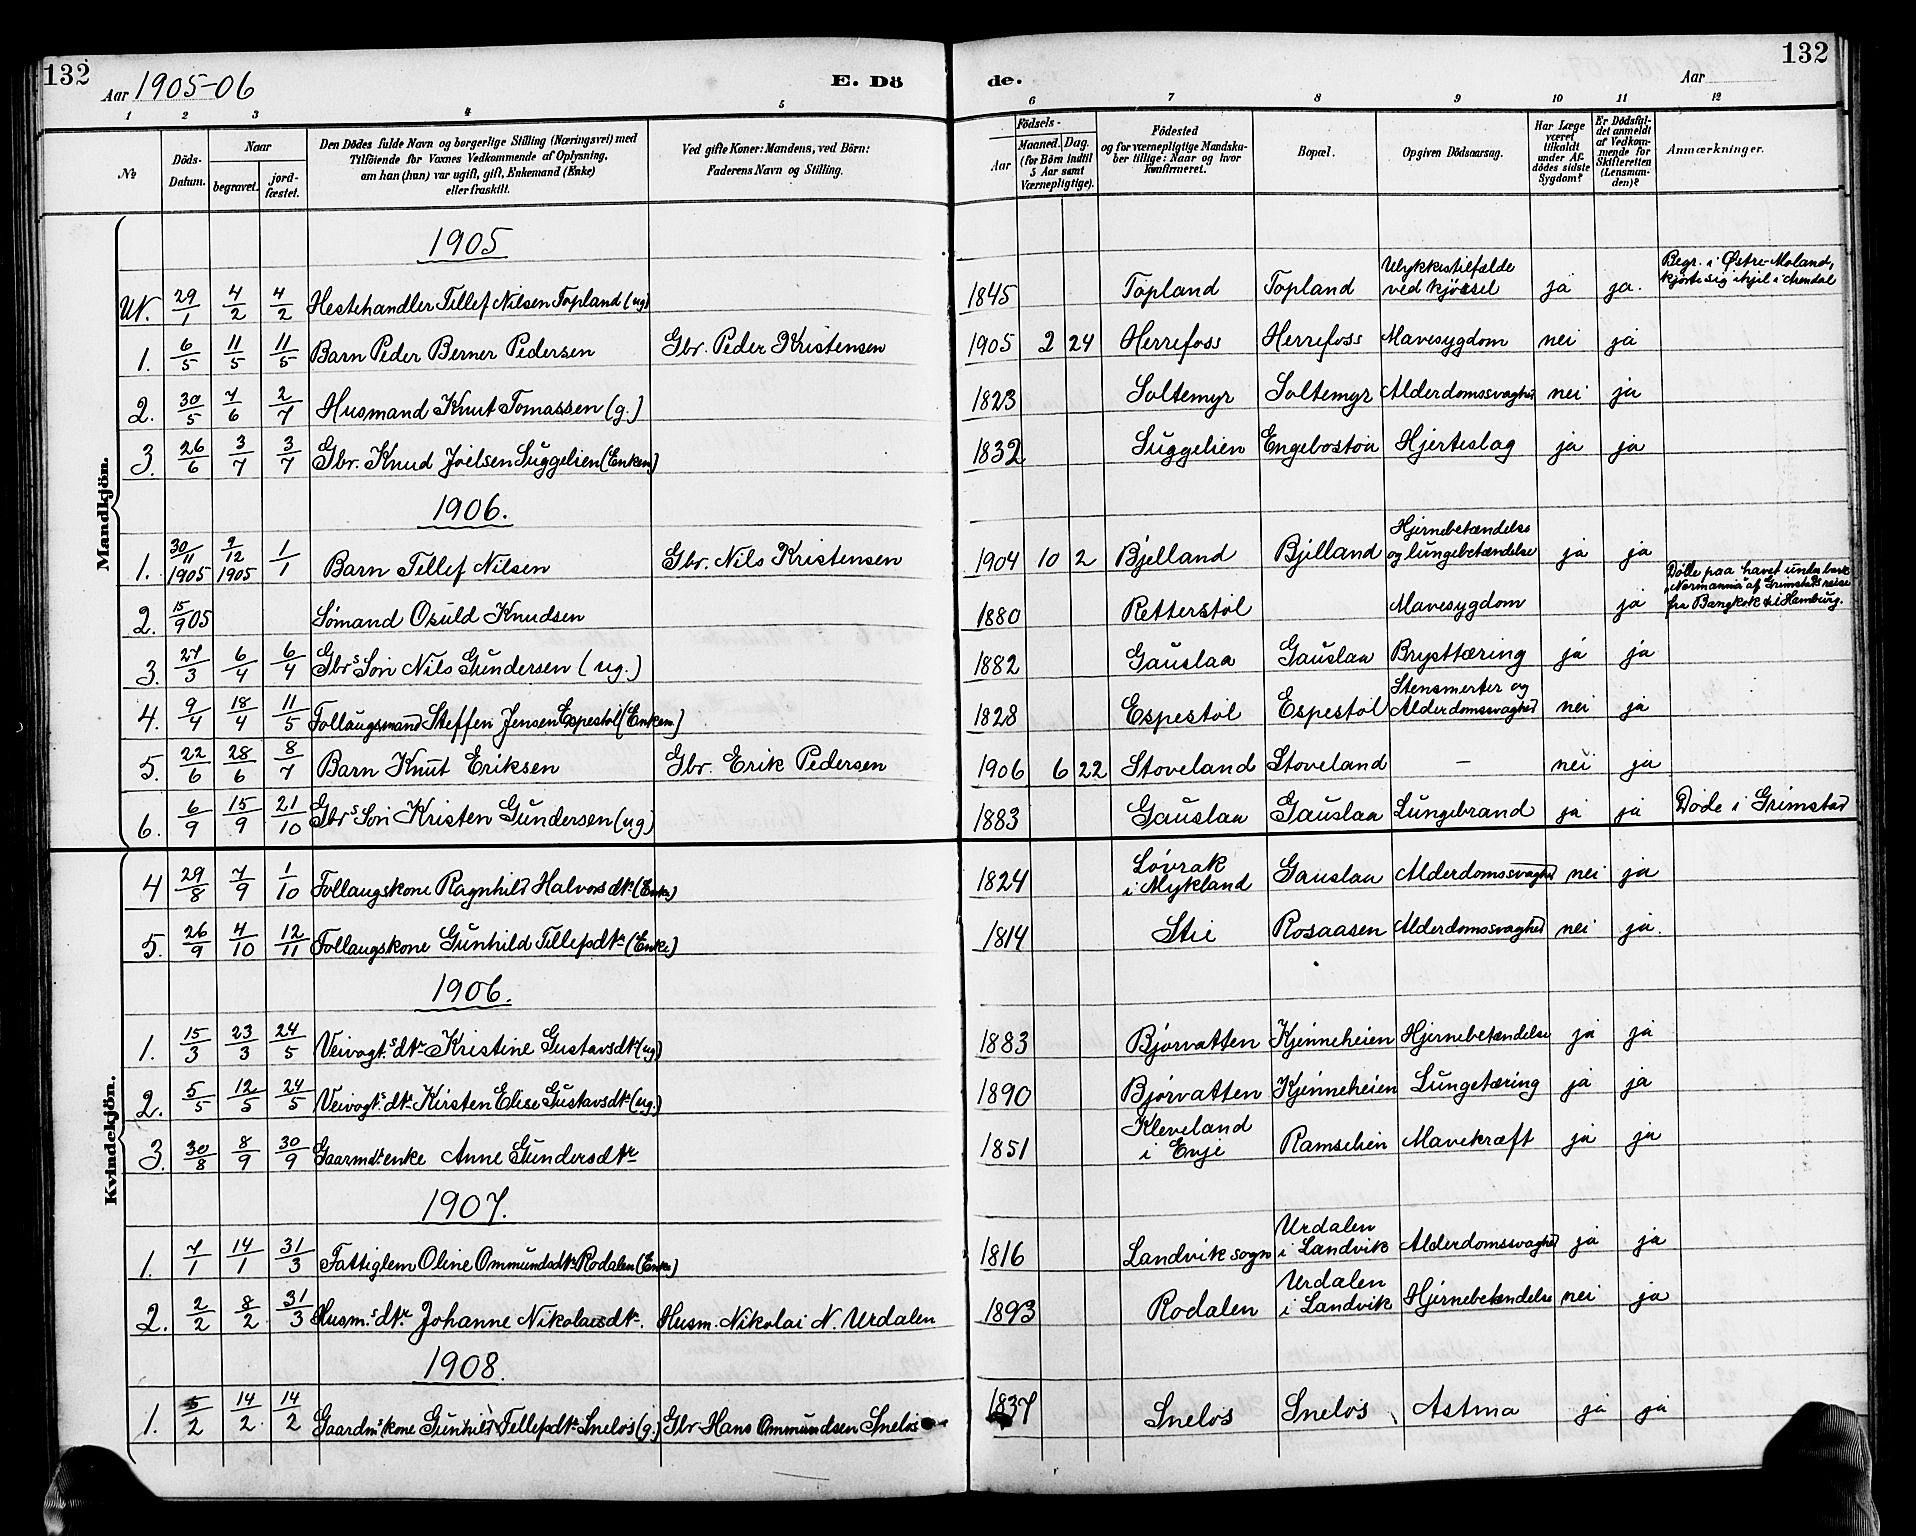 132 132
Aar 1905-06 E. Dö de. Aar
1 2 3 4 5 6 7 8 9 10 11 12
№ Döds-Datum. Naar begravet. jordfæstet. Den Dödes fulde Navn og borgerlige Stilling (Næringsvei) med Tilföiende for Voxnes Vedkommende af Oplysning, om han (hun) var ugift, gift, Enkemand (Enke) eller fraskilt. Ved gifte Koner: Mandens, ved Börn: Faderens Navn og Stilling. Födsels- Aar Maaned. Dag. (for Börn indtil 5 Aar samt Værnepligtige). Födested og for værnepligtige Mandskaber tillige: Naar og hvor konfirmeret. Bopæl. Opgiven Dödsaarsag. Har Læge været tilkaldt under Afdødes sidste Sygdom? Er Dödsfaldet anmeldt af Vedkommende for Skifteretten (Lensmanden)? Anmærkninger.
Mandkjön.
1905
UN. 29/1 4/2 4/2 Hestehandler Tellef Nilsen Topland (ug) 1845 Topland Topland Ulykkestilfælde ved kjørsel ja ja. Begr. i Østre-Moland, kjørte sig ihjel i Arendal
1. 6/5 11/5 11/5 Barn Peder Berner Pedersen Gbr. Peder Kristensen 1905 2 24 Herrefoss Herrefoss Mavesygdom nei ja
2. 30/5 7/6 2/7 Husmand Knut Tomassen (g.) 1823 Soltemyr Soltemyr Alderdomssvaghed nei ja
3. 26/6 3/7 3/7 Gbr. Knud Joelsen Suggelien (Enkem) 1832 Suggelien Engebostøa Hjerteslag ja ja
1906.
1. 30/11 1905 9/12 1905 1/1 Barn Tellef Nilsen Gbr. Nils Kristensen 1904 10 2 Bjelland Bjelland Hjernebetændelse og lungebetændelse ja ja
2. 15/9 05 Sømand Osuld Knudsen 1880 Retterstøl Mavesygdom ja Døde paa havet under bark "Normannia" af Grimstads reise fra Bangkok til Hamburg.
3. 27/3 6/4 6/4 Gbrs Søn Nils Gundersen (ug.) 1882 Gauslaa Gauslaa Brysttæring ja ja
4. 9/4 18/4 11/5 Follaugsmand Steffen Jensen Espestøl (Enkem.) 1828 Espestøl Espestøl Stensmerter og Alderdomssvaghed nei ja
5. 22/6 28/6 8/7 Barn Knut Eriksen Gbr. Erik Pedersen 1906 6 22 Stoveland Stoveland – nei ja
6. 6/9 15/9 21/10 Gbrs Søn Kristen Gundersen (ug) 1883 Gauslaa Gauslaa Lungebrand ja ja Døde i Grimstad
Kvindekjön.
4 29/8 7/9 1/10 Follaugskone Ragnhild Halvorsdtr (Enke) 1824 Løvrak i Mykland Gauslaa Alderdomssvaghed nei ja
5. 26/9 4/10 12/11 Follaugskone Gunhild Tellefsdtr (Enke) 1814 Stie Rosaasen Alderdomssvaghed nei ja.
1906.
1. 15/3 23/3 24/5 Veivogt.s dtr Kristine Gustavsdtr (ug) 1883 Bjørvatten Kjenneheien Hjernebetændelse ja ja
2. 5/5 12/5 24/5 Veivogt.s dtr. Kirsten Elise Gustavsdtr (ug.) 1890 Bjørvatten Kjenneheien Lungetæring ja ja
3. 30/8 8/9 30/9 Gaarmdsenke Anne Gundersdtr 1851 Kleveland i Evje Ramselien Mavekræft ja ja
1907.
1. 7/1 14/1 31/3 Fattiglem Oline Ommundsdtr Rodalen (Enke) 1816 Landvik sogn Urdalen i Landvik Alderdomssvaghed ja ja
2. 2/2 8/2 31/3 Husm.s dtr. Johanne Nikolaisdtr. Husm. Nikolai N. Urdalen 1893 Rodalen Urdalen i Landvik Hjernebetændelse nei ja
1908.
1. 5/2 14/2 14/2 Gaardm.s kone Gunhild Tellefsdtr Sneløs (g.) Gbr Hans Ommundsen Sneløs 1837 Sneløs Sneløs Astma ja ja